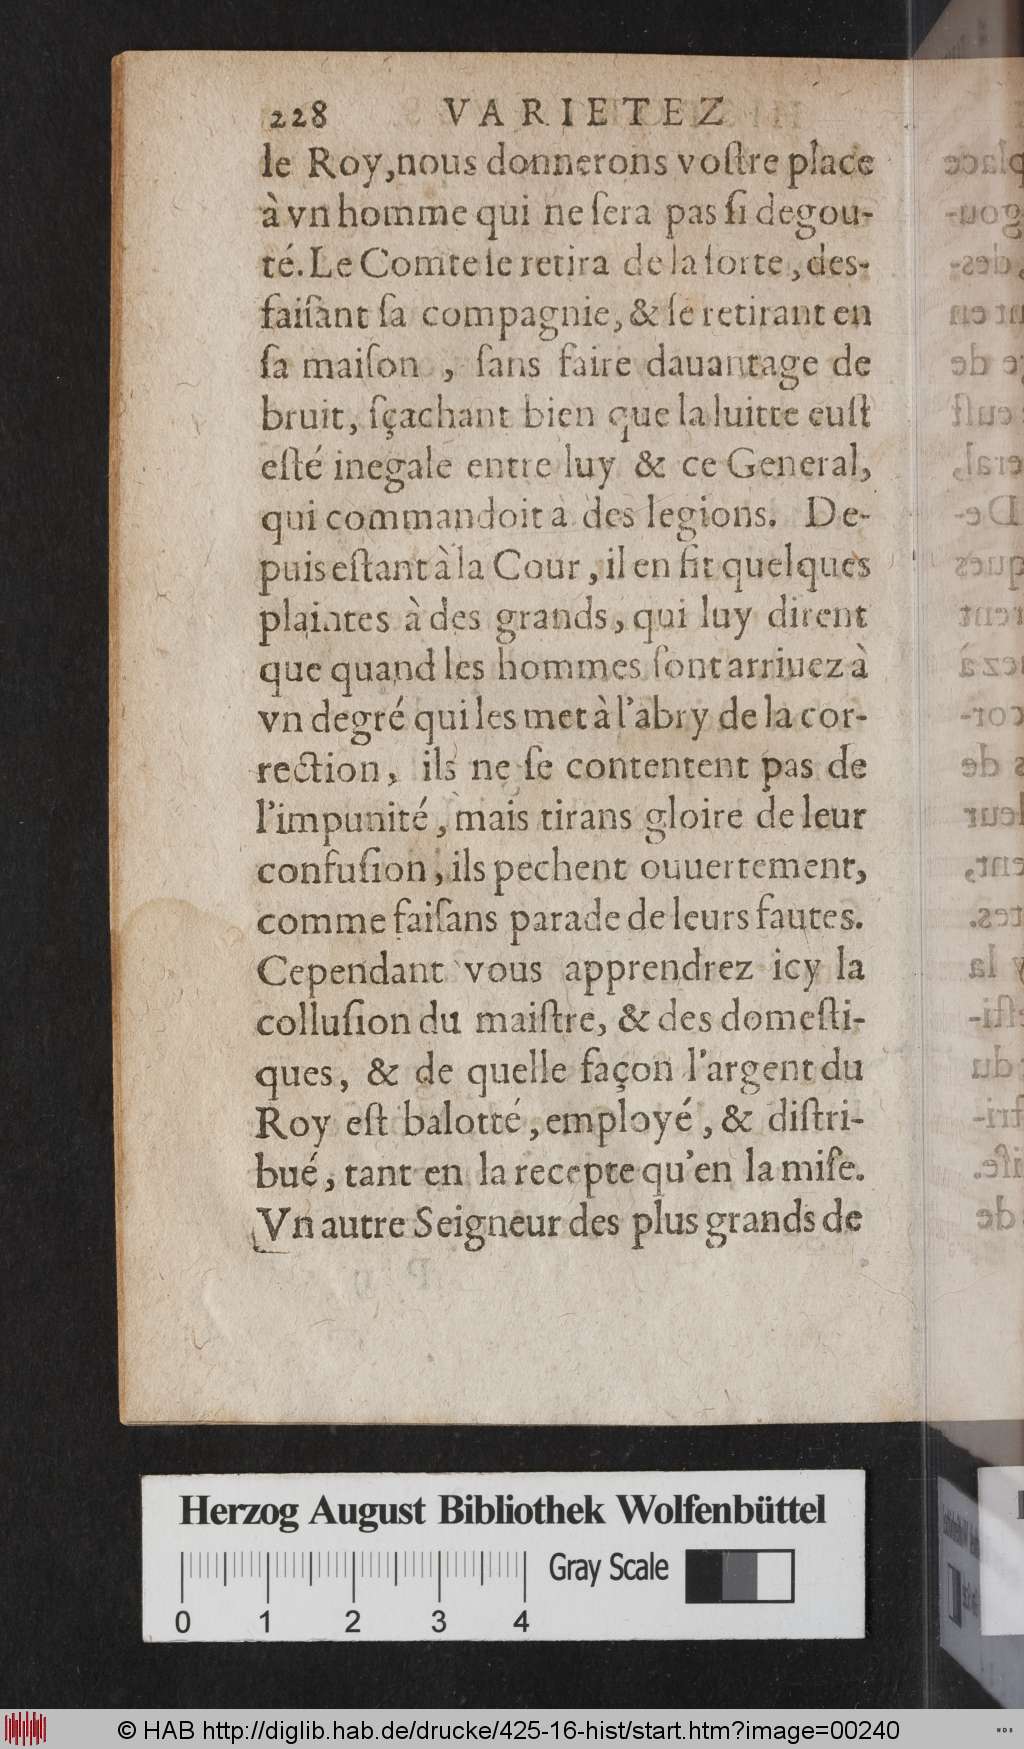 228 VARIETEZ
le Roy, nous donnerons voſtre place
à vn homme qui ne ſera pas ſi degou-
té. Le Comte ſe retira de la ſorte, des-
faiſant ſa compagnie, & ſe retirant en
ſa maiſon , ſans faire dauantage de
bruit, ſçachant bien que la luitte euſt
eſté inegale entre luy & ce General,
qui commandoit à des legions. De-
puis eſtant à la Cour, il en fit quelques
plaintes à des grands, qui luy dirent
que quand les hommes ſont arriuez à
vn degré qui les met à l'abry de la cor-
rection, ils ne ſe contentent pas de
l'impunité, mais tirans gloire de leur
confuſion, ils pechent ouuertement,
comme faiſans parade de leurs fautes.
Cependant vous apprendrez icy la
colluſion du maiſtre, & des domeſti-
ques, & de quelle façon l'argent du
Roy eſt balotté, employé, & diſtri-
bué, tant en la recepte qu'en la miſe.
Vn autre Seigneur des plus grands de
Herzog August Bibliothek Wolfenbüttel
Gray Scale
0 1 2 3 4
© HAB http://diglib.hab.de/drucke/425-16-hist/start.htm?image=00240